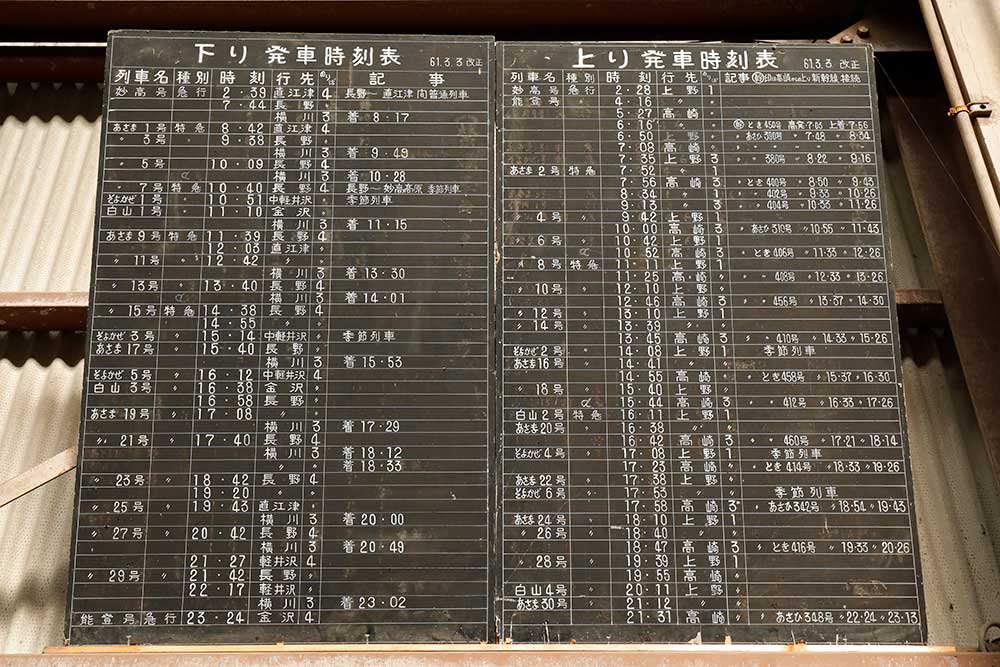 下り 発車時刻表 61.3.3 改正
列車名 種別 時刻 行先 のりば 記事
妙高号 急行 2・39 直江津 4 長野〜直江津間普通列車
7・44 長野 〃
横川 3 着 8・17
あさま 1号 特急 8・42 直江津 4
〃 3号 〃 9・38 長野 〃
横川 3 着 9・49
〃 5号 〃 10・09 長野 4
横川 3 着 10・28
〃 7号 特急 10・40 長野 4 長野〜妙高高原 季節列車
そよかぜ 1号 〃 10・51 中軽井沢 〃 季節列車
白山 1号 〃 11・10 金沢 〃
横川 3 着 11・15
あさま 9号 特急 11・39 長野 4
12・03 直江津 〃
〃 11号 〃 12・42 〃 〃
横川 3 着 13・30
〃 13号 〃 13・40 長野 4
横川 3 着 14・01
〃 15号 特急 14・38 長野 4
14・55 〃 〃
そよかぜ 3号 〃 15・14 中軽井沢 〃 季節列車
あさま 17号 〃 15・40 長野 〃
横川 3 着 15・53
そよかぜ 5号 〃 16・12 中軽井沢 4
白山 3号 〃 16・38 金沢 〃
16・58 長野 〃
あさま 19号 〃 17・08 〃 〃
横川 3 着 17・29
〃 21号 〃 17・40 長野 4
横川 3 着 18・12
〃 〃 着 18・33
〃 23号 〃 18・42 長野 4
19・20 〃 〃
〃 25号 〃 19・43 直江津 〃
横川 3 着 20・00
〃 27号 〃 20・42 長野 4
横川 3 着 20・49
21・27 軽井沢 4
〃 29号 〃 21・42 長野 〃
22・17 軽井沢 〃
横川 3 着 23・02
能登号 急行 23・24 金沢 4
上り 発車時刻表 61.3.3 改正
列車名 種別 時刻 行先 のりば 記事 印は高崎からの上り新幹線接続
妙高号 急行 2・28 上野 1
能登号 〃 4・16 〃 〃
5・27 高崎 〃
6・16 〃 〃 とき450号 高発7・03 上着7・56
6・50 上野 〃 あさひ390号 〃7・48 〃8・34
7・08 高崎 〃
7・35 上野 3 〃 380号 〃8・22 〃9・16
あさま 2号 特急 7・52 〃 1
7・56 高崎 3 〃 とき400号 〃8・50 〃9・43
8・34 〃 〃 〃 402号 〃9・33 〃10・26
9・13 〃 3 〃 404号 〃10・33 〃11・26
〃 4号 〃 9・42 上野 1
10・00 高崎 3 〃 あさひ310号 〃10・55 〃11・43
〃 6号 〃 10・42 上野 1
10・52 高崎 3 〃 とき406号 〃11・33 〃12・26
〃 8号 特急 11・11 上野 1
11・25 高崎 3 〃 408号 〃12・33 〃13・26
〃 10号 〃 12・10 上野 〃
12・46 高崎 3 〃 〃 456号 〃13・37 〃14・30
〃 12号 〃 13・10 上野 1
〃 14号 〃 13・39 〃 〃
13・45 高崎 3 〃 〃 410号 〃14・33 〃15・26
そよかぜ 2号 〃 14・08 上野 1 季節列車
あさま 16号 〃 14・41 〃 〃
14・55 高崎 〃 〃 とき458号 〃15・37 〃16・30
〃 18号 〃 15・40 上野 1
15・44 高崎 3 〃 〃 412号 〃16・33 〃17・26
白山 2号 特急 16・11 上野 1
あさま 20号 〃 16・38 〃 〃
16・42 高崎 3 〃 460号 〃17・21 〃18・14
そよかぜ 4号 〃 17・08 上野 1 季節列車
17・23 高崎 〃 〃 とき414号 〃18・33 〃19・26
あさま 22号 〃 17・38 上野 〃
そよかぜ 6号 〃 17・53 〃 〃 季節列車
17・58 高崎 3 〃 あさひ342号 〃18・54 〃19・43
あさま 24号 〃 18・10 上野 1
〃 26号 〃 18・40 〃 〃
18・47 高崎 3 〃 とき416号 〃19・33 〃20・26
〃 28号 〃 19・39 上野 1
19・55 高崎 〃
白山 4号 〃 20・11 上野 〃
あさま 30号 〃 21・12 〃 〃
21・31 高崎 〃 〃 あさひ348号 〃22・24 〃23・13